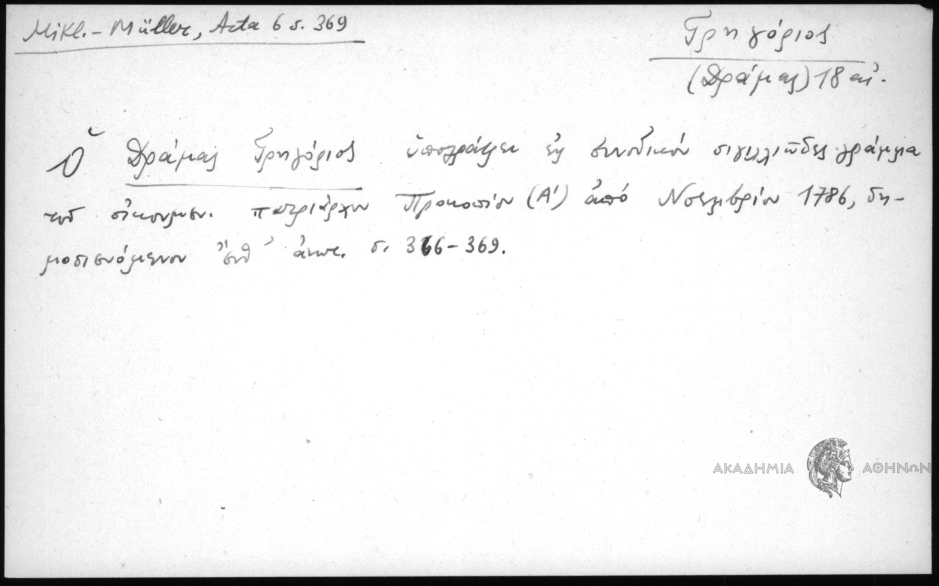 Mikl.- Müller, Acta 6 σ. 369
Γρηγόριος
(Δράμας) 18 αἰ.
Ὁ Δράμας Γρηγόριος ὑπογράφει ἐν συνοδικόν σιγιλλιῶδες γράμμα
τοῦ οἰκουμεν. πατριάρχου Προκοπίου (Α') ἀπό Νοεμβρίου 1786, δη-
μοσιευόμενον ἐνθ' ἀνωτ. σ. 366-369.
ΑΚΑΔΗΜΙΑ ΑΘΗΝΩΝ